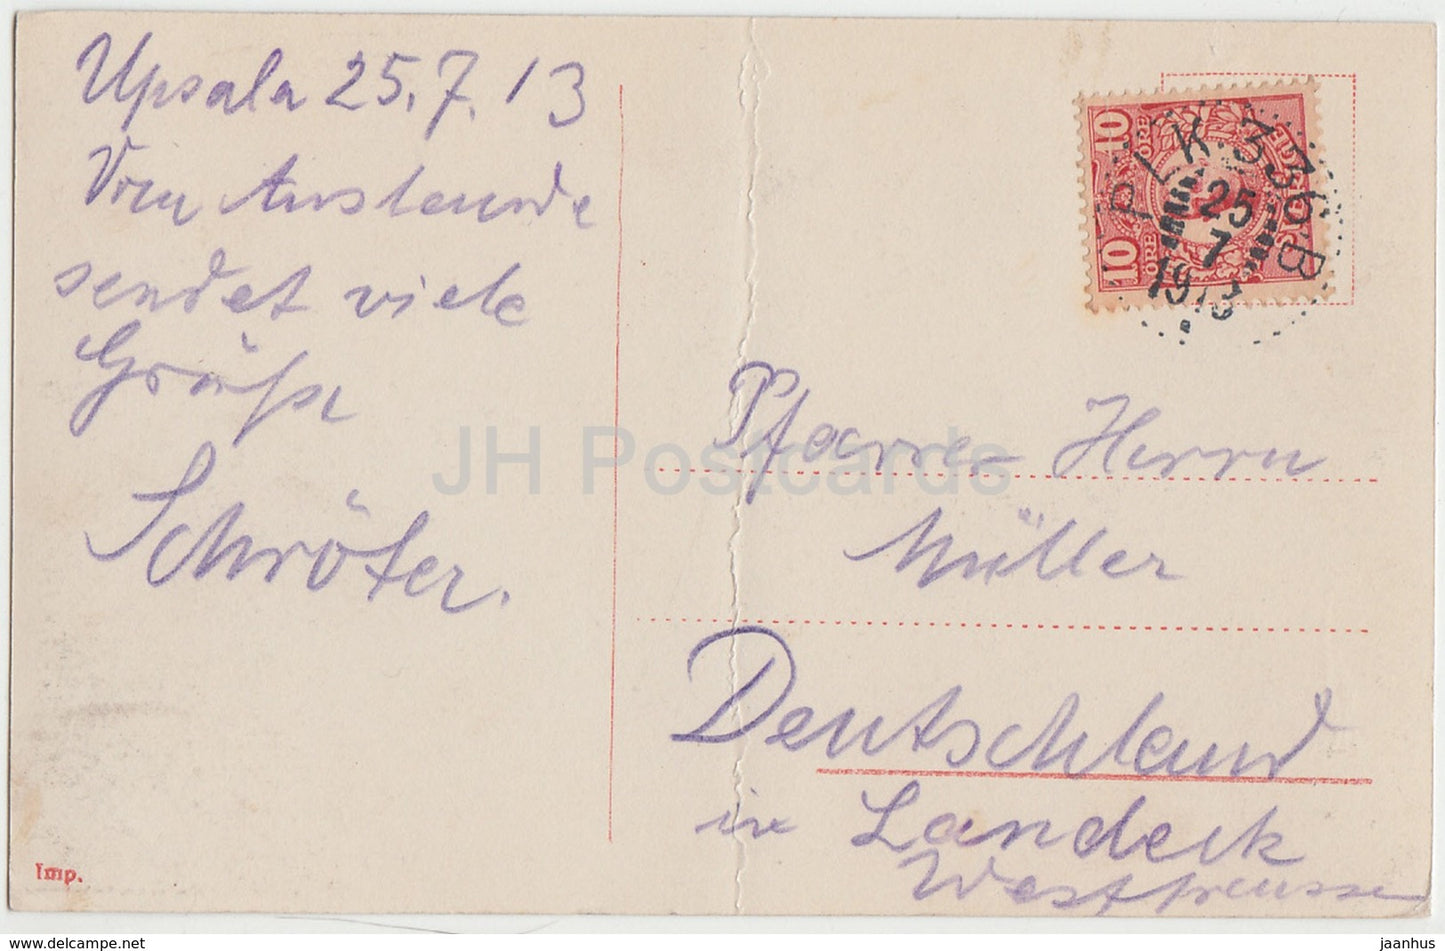 Upsala 25.7.13
Vom Auslande
sendet viele
Grüße
Schröter.
Imp.
10 ÖRE
10 ÖRE
PLK 336 B
25
7
1913
Pfarrer Herrn
Müller
Deutschland
in Landeck
Westpreussen
JH Postcards
www.delcampe.net
jaanhus